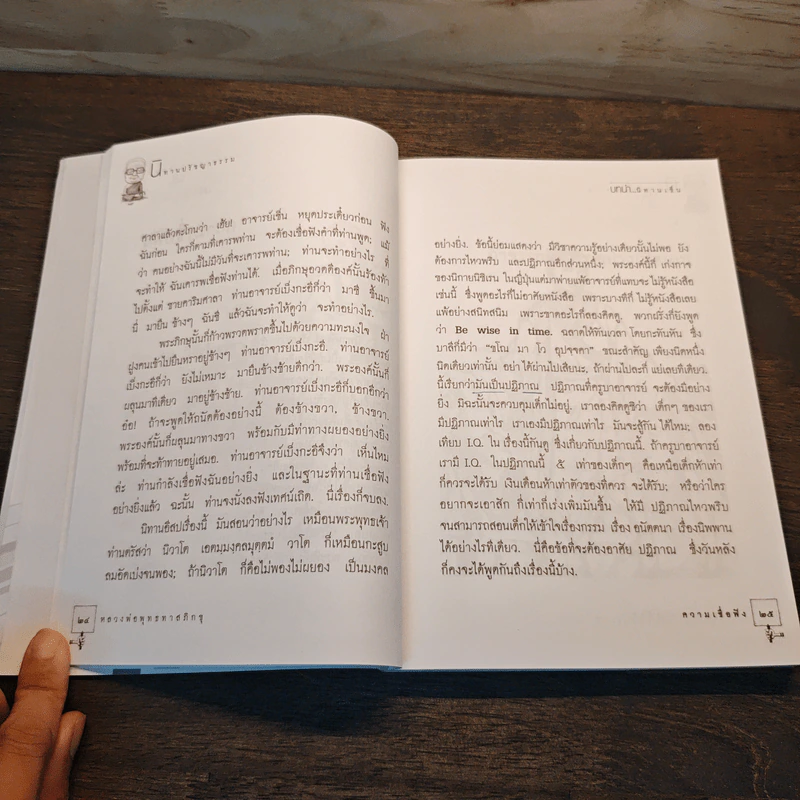 นิทานปรัชญาธรรม
ศาลาแล้วตะโกนว่า เฮ้ย! อาจารย์เซ็น หยุดประเดี๋ยวก่อน ฟัง
ฉันก่อน ใครก็ตามที่เคารพท่าน จะต้องเชื่อฟังคำที่ท่านพูด; แม้
ว่า คนอย่างฉันนี้ไม่มีวันที่จะเคารพท่าน; ท่านจะทำอย่างไร ที่
จะทำให้ ฉันเคารพเชื่อฟังท่านได้. เมื่อภิกษุอวดดีองค์นั้นร้องท้า
ไปตั้งแต่ ชายคาริมศาลา ท่านอาจารย์เบ็งกะอีก็ว่า มาซี ขึ้นมา
นี่ มายืน ข้างๆ ฉันซี แล้วฉันจะทำให้ดูว่า จะทำอย่างไร.
พระภิกษุนั้นก็ก้าวพรวดพราดขึ้นไปด้วยความทะนงใจ ฝ่า
ฝูงคนเข้าไปยืนหราอยู่ข้างๆ ท่านอาจารย์เบ็งกะอี. ท่านอาจารย์
เบ็งกะอีก็ว่า ยังไม่เหมาะ มายืนข้างซ้ายดีกว่า. พระองค์นั้นก็
ผลุนมาทีเดียว มาอยู่ข้างซ้าย. ท่านอาจารย์เบ็งกะอีก็บอกอีกว่า
อ้อ! ถ้าจะพูดให้ถนัดต้องอย่างนี้ ต้องข้างขวา, ข้างขวา.
พระองค์นั้นก็ผลุนมาทางขวา พร้อมกับมีท่าทางผยองอย่างยิ่ง
พร้อมที่จะท้าทายอยู่เสมอ. ท่านอาจารย์เบ็งกะอีจึงว่า เห็นไหม
ล่ะ ท่านกำลังเชื่อฟังฉันอย่างยิ่ง และในฐานะที่ท่านเชื่อฟัง
อย่างยิ่งแล้ว ฉะนั้น ท่านจงนั่งลงฟังเทศน์เถิด. นี่เรื่องก็จบลง.
นิทานอีสปเรื่องนี้ มันสอนว่าอย่างไร เหมือนพระพุทธเจ้า
ท่านตรัสว่า นิวาโต เอตมฺมงฺคลมุตฺตมํ วาโต ก็เหมือนกะสูบ
ลมอัดเบ่งจนพอง; ถ้านิวาโต ก็คือไม่พองไม่ผยอง เป็นมงคล
๒๔
หลวงพ่อพุทธทาสภิกขุ
บทนำ...นิทานเซ็น
อย่างยิ่ง. ข้อนี้ย่อมแสดงว่า มีวิชาความรู้อย่างเดียวนั้นไม่พอ ยัง
ต้องการไหวพริบ และปฏิภาณอีกส่วนหนึ่ง; พระองค์นี้ก็ เก่งกาจ
ของนิกายนิชิเรน ในญี่ปุ่นแต่มาพ่ายแพ้อาจารย์ที่แทบจะ ไม่รู้หนังสือ
เช่นนี้ ซึ่งพูดอะไรก็ไม่อาศัยหนังสือ เพราะบางทีก็ ไม่รู้หนังสือเลย
แพ้อย่างสนิทสนิม เพราะขาดอะไรก็ลองคิดดู, พวกฝรั่งก็ยังพูด
ว่า Be wise in time. ฉลาดให้ทันเวลา โดยกะทันหัน ซึ่ง
บาลีก็มีว่า "ขโณ มา โว อุปจฺจคา" ขณะสำคัญ เพียงนิดหนึ่ง
นิดเดียวเท่านั้น อย่า ได้ผ่านไปเสียนะ, ถ้าผ่านไปละก็ แย่เลยทีเดียว.
นี้เรียกว่ามันเป็นปฏิภาณ ปฏิภาณที่ครูบาอาจารย์ จะต้องมีอย่าง
ยิ่ง มิฉะนั้นจะควบคุมเด็กไม่อยู่. เราลองคิดดูซิว่า เด็กๆ ของเรา
มีปฏิภาณเท่าไร เราเองมีปฏิภาณเท่าไร มันจะสู้กัน ได้ไหม; ลอง
เทียบ I.Q. ใน เรื่องนี้กันดู ซึ่งเกี่ยวกับปฏิภาณนี้. ถ้าครูบาอาจารย์
เรามี I.Q. ในปฏิภาณนี้ ๕ เท่าของเด็กๆ คือเหนือเด็กห้าเท่า
ก็ควรจะได้รับ เงินเดือนห้าเท่าตัวของที่ควร จะได้รับ; หรือว่าใคร
อยากจะเอาสัก กี่เท่าก็เร่งเพิ่มมันขึ้น ให้มี ปฏิภาณไหวพริบ
จนสามารถสอนเด็กให้เข้าใจเรื่องกรรม เรื่อง อนัตตา เรื่องนิพพาน
ได้อย่างไรทีเดียว. นี่คือข้อที่จะต้องอาศัย ปฏิภาณ ซึ่งวันหลัง
ก็คงจะได้พูดกันถึงเรื่องนี้บ้าง.
ความเชื่อฟัง
๒๕